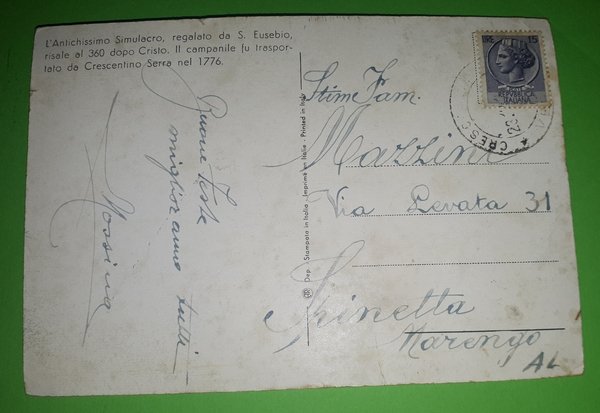 L'Antichissimo Simulacro, regalato da S. Eusebio,
risale al 360 dopo Cristo. Il campanile fu traspor-
tato da Crescentino Serra nel 1776.
Buone Feste
miglioriamo tutti
Rossina
Dep. Stampato in Italia - Imprimé en Italie - Printed in Italy
LIRE 15
REPUBBLICA
ITALIANA
CRESC
Stim. Fam.
Mazzini
Via Levata 31
Spinetta
Marengo
AL